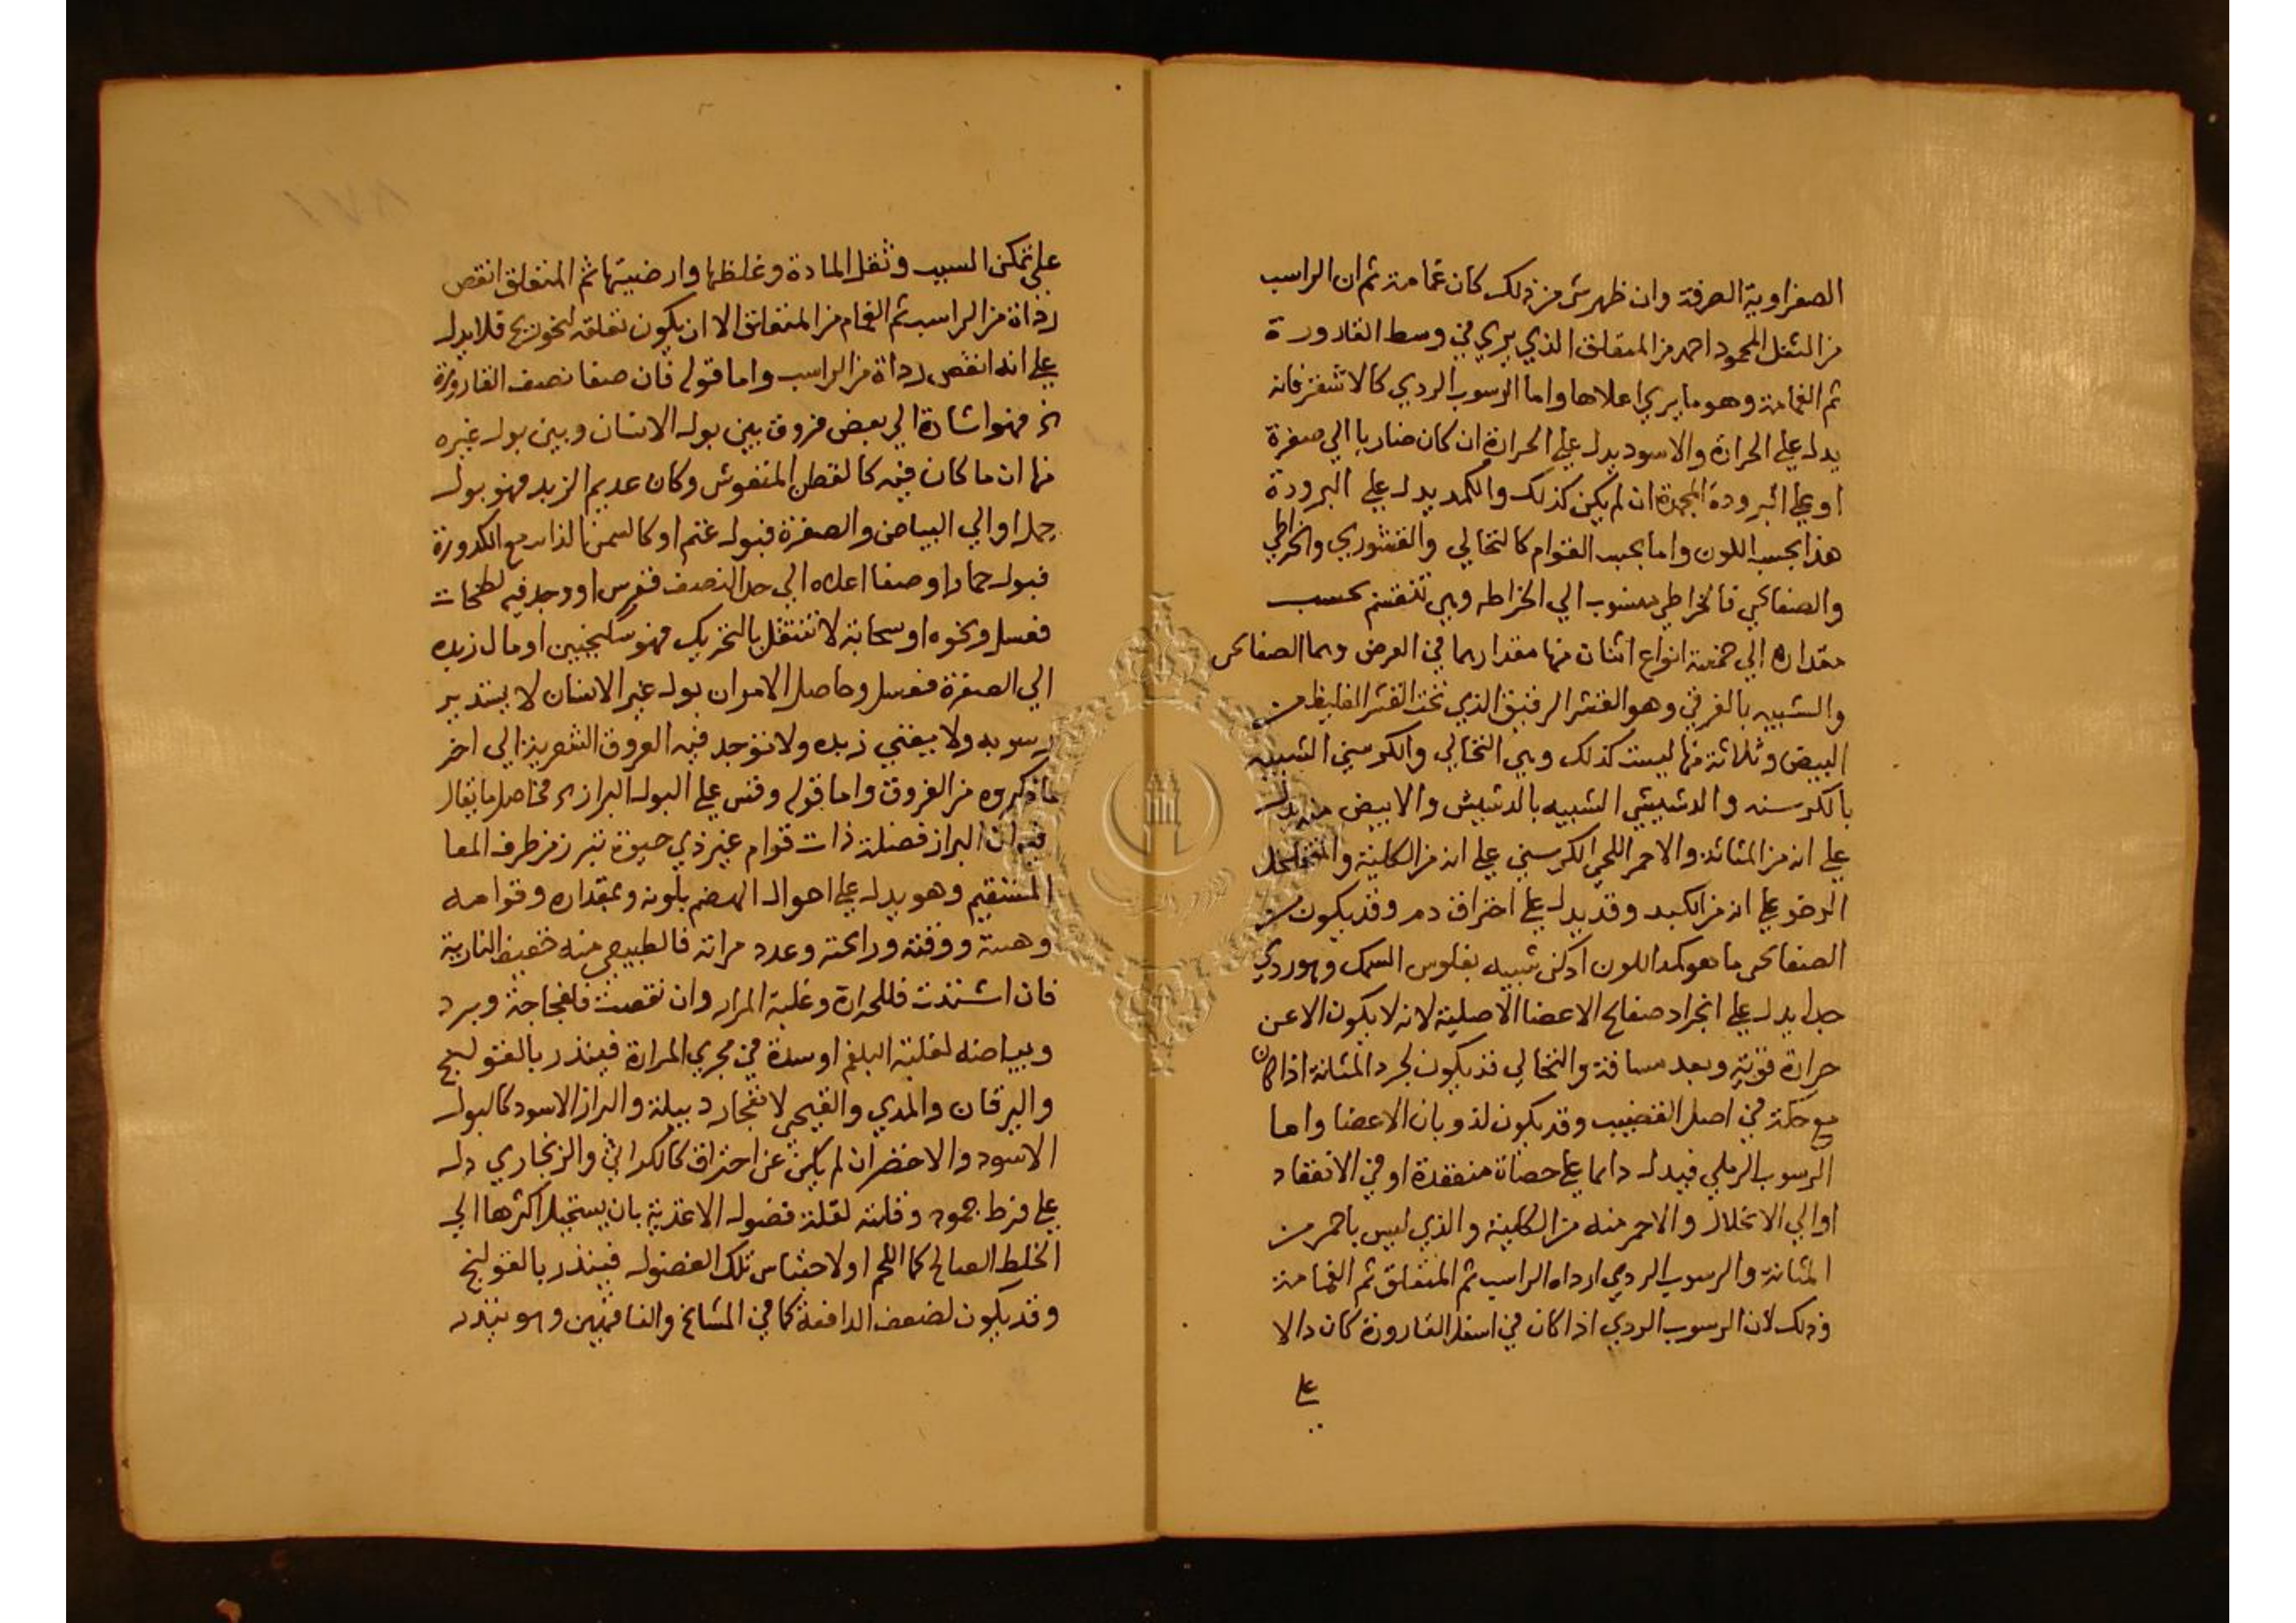 الصفراوية الصرفة وان ظهر شي من ذلك كان غمامة ثم ان الراسب
من الثفل المحمود احمد من المتعلق الذي يري في وسط القارورة
ثم الغمامة وهو ما يري اعلاها واما الرسوب الردي كالاشقر فانه
يدل علي الحرارة والاسود يدل علي الحرارة ان كان ضاربا الي صفرة
او علي البرودة المجمدة ان لم يكن كذلك والكمد يدل علي البرودة
هذا بحسب اللون واما بحسب القوام كالنخالي والقشوري والخراطي
والصفائحي فالخراطي منسوب الي الخراطه وهي تنقسم بحسب
مقداره الي خمسة انواع اثنان منها مقدارهما في العرض وهما الصفائحي
والشبيه بالغرقي وهو القشر الرقيق الذي تحت القشر الغليظ من
البيض وثلاثة منها ليست كذلك وهي النخالي والكرسني الشبيه
بالكرسنه والدشيشي الشبيه بالدشيش والابيض منه يدل
علي انه من المثانة والاحمر اللحمي الكرسني علي انه من الكلية والمتخلخل
الرخو علي انه من الكبد وقد يدل علي احتراق دم وقد يكون من
الصفائحي ما هو كمد اللون ادكن شبيه بفلوس السمك وهو ردي
جدا يدل علي انجراد صفائح الاعضا الاصلية لانه لا يكون الا عن
حرارة قوية وبعد مسافة والنخالي قد يكون لجرد المثانة اذا كان
مع حكة في اصل القضيب وقد يكون لذوبان الاعضا واما
الرسوب الرملي فيدل دائما علي حصاة منعقدة او في الانعقاد
او الي الانحلال والاحمر منه من الكلية والذي ليس باحمر من
المثانة والرسوب الردي ارداه الراسب ثم المتعلق ثم الغمامة
وذلك لان الرسوب الردي اذا كان في اسفل القارورة كان دالا
علي
علي تمكن السبب وثقل المادة وغلظها وارضيتها ثم المتعلق انقص
رداة من الراسب ثم الغمام من المتعلق الا ان يكون تعلقه لنحو ريح فلا يدل
علي انه انقص رداة من الراسب واما قوله فان صفا نصف القارورة
الخ فهو اشارة الي بعض فروق بين بول الانسان وبين بول غيره
منها ان ما كان فيه كالقطن المنفوش وكان عديم الزبد فهو بول
جمل او الي البياض والصفرة فبول غنم او كالسمن الذائب مع الكدورة
فبول حمار او صفا اعلاه الي حد النصف ففرس او وجد فيه لطخات
فعسل ونحوه او سحابة لا تنتقل بالتحريك فهو سكنجبين او مال زبده
الي الصفرة فعسل وحاصل الامر ان بول غير الانسان لا يستدير
رسوبه ولا يبقي زبده ولا توجد فيه العروق الشعرية الي اخر
ما ذكروه من الفروق واما قوله وقس علي البول البراز الخ فحاصل ما يقال
فيه ان البراز فضلة ذات قوام غير ذي حيوة تبرز من طرف المعا
المستقيم وهو يدل علي احوال الهضم بلونه وبمقداره وقوامه
وهيئته ووقته ورائحته وعدد مراته فالطبيعي منه خفيف النارية
فان اشتدت فللحرارة وغلبة المرار وان نقصت فلفجاجة وبرد
وبياضه لغلبة البلغم او سدة في مجري المرارة فينذر بالقولنج
واليرقان والمدي والقيحي لانفجار دبيلة والبراز الاسود كالبول
الاسود والاخضر ان لم يكن عن احتراق كالكراثي والزنجاري دل
علي فرط جمود وقلته لقلة فضول الاغذية بان يستحيل اكثرها الي
الخلط الصالح كما اللحم او لاحتباس تلك الفضول فينذر بالقولنج
وقد يكون لضعف الدافعة كما في المشائخ والناقهين وهو ينذر